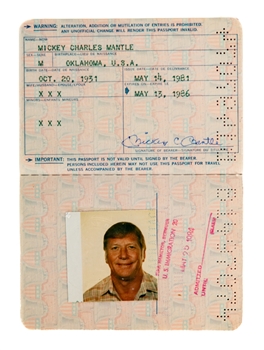 WARNING: ALTERATION, ADDITION OR MUTILATION OF ENTRIES IS PROHIBITED
ANY UNOFFICIAL CHANGE WILL RENDER THIS PASSPORT INVALID
MICKEY CHARLES MANTLE
M OKLAHOMA, U.S.A.
OCT. 20, 1931 MAY 14, 1981
X X X MAY 13, 1986
X X X
Mickey C Mantle
SIGNATURE OF BEARER
IMPORTANT: THIS PASSPORT IS NOT VALID UNTIL SIGNED BY THE BEARER.
PERSONS INCLUDED HEREIN MAY NOT USE THIS PASSPORT FOR TRAVEL
UNLESS ACCOMPANIED BY THE BEARER.
U.S. IMMIGRATION
ADMITTED
UNTIL